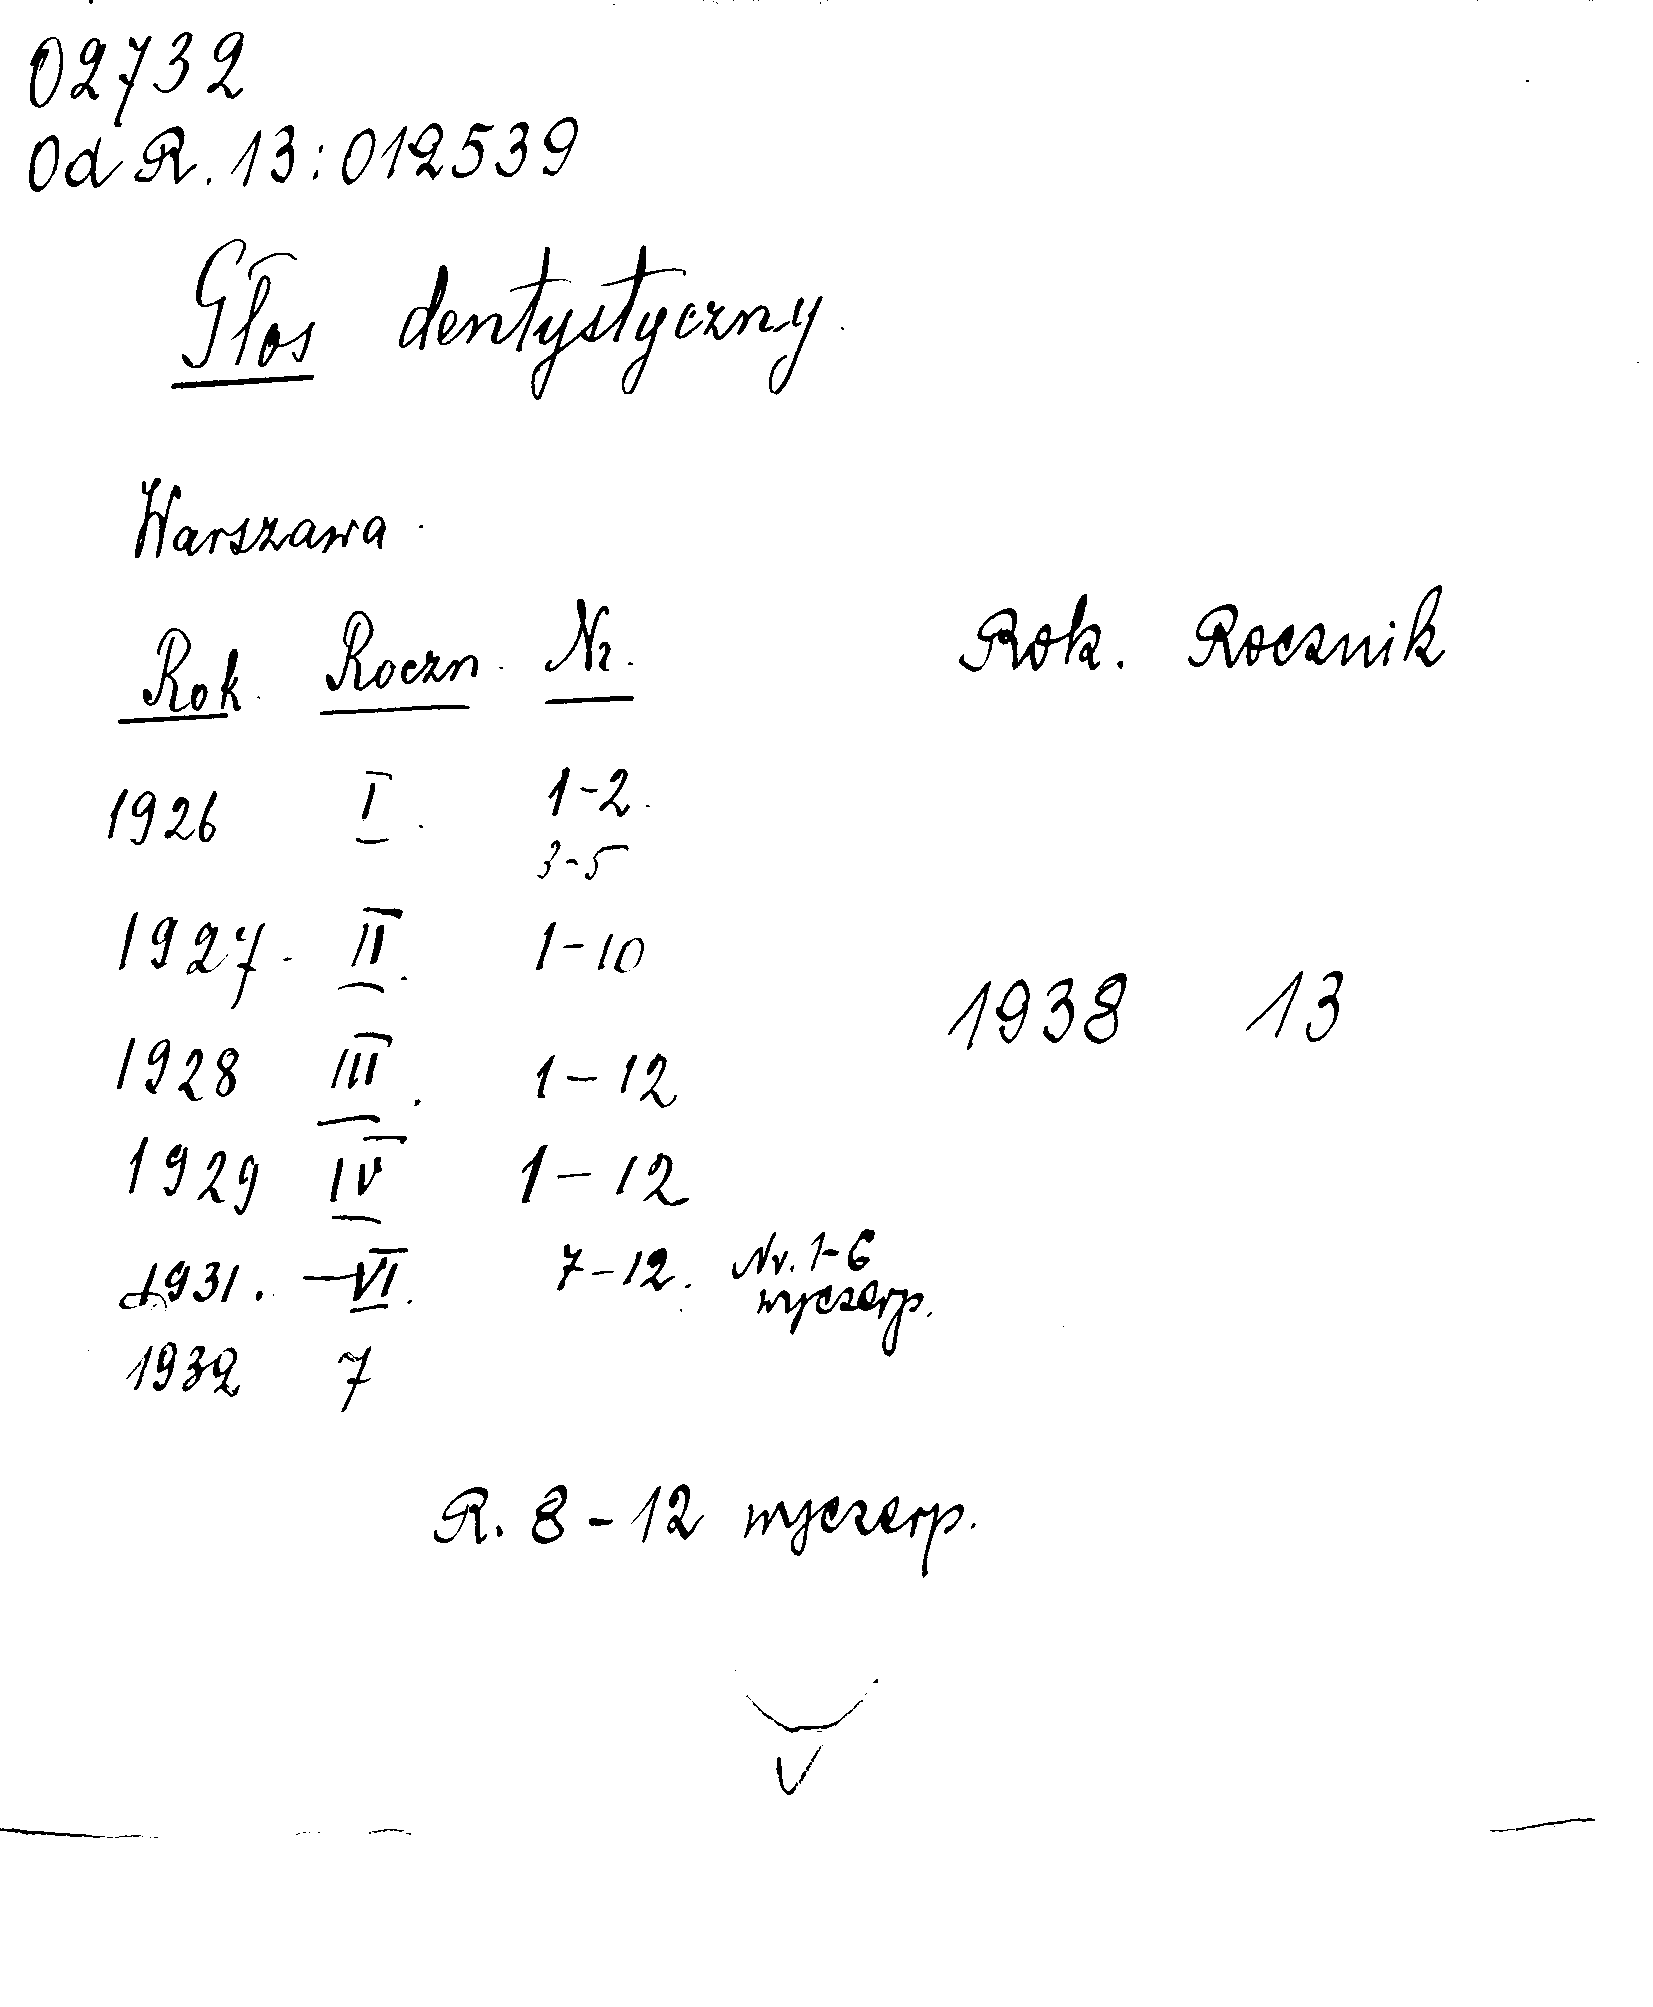 02732
Od R. 13: 012539
Głos dentystyczny
Warszawa
Rok. Roczn. Nr. Rok. Rocznik
1926 I. 1-2.
3-5
1927. II. 1-10
1938 13
1928 III. 1-12
1929 IV 1-12
1931. VI. 7-12. Nr. 1-6
wyczerp.
1932 7
R. 8-12 wyczerp.